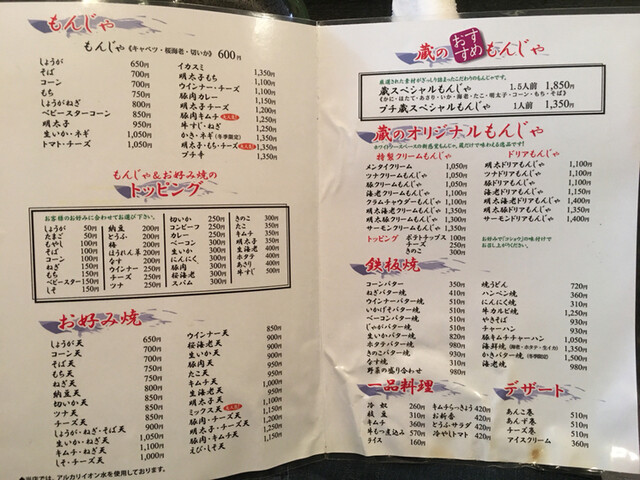 もんじゃ
もんじゃ《キャベツ・桜海老・切いか》 600円
しょうが 650円
そば 700円
コーン 700円
もち 750円
しょうがねぎ 800円
ベビースターコーン 800円
明太子 950円
生いか・ネギ 1,050円
トマト・チーズ 1,050円
イカスミ
明太子もち 1,350円
ウインナー・チーズ
明太子・コーン
明太子チーズ
豚肉キムチ
牛すじ・ねぎ
かき・ネギ(冬季限定)
明太子・もち・チーズ 1,350円
プチ牛
もんじゃ&お好み焼の
トッピング
お客様のお好みに合わせてお選び下さい。
しょうが 50円
たまご 50円
もやし 100円
そば 100円
コーン 100円
ねぎ 150円
もち 150円
ベビースター 150円
しそ 150円
納豆 200円
とうふ 200円
梅 200円
ほうれん草 200円
なす 200円
ウインナー 250円
チーズ 250円
ツナ 250円
切いか 250円
コンビーフ 250円
カレー 250円
ベーコン 250円
生いか 300円
にんにく 300円
豚肉 300円
桜海老 300円
スパム 300円
きのこ 300円
たこ 350円
キムチ 350円
明太子 350円
生海老 400円
ホタテ 400円
あさり 450円
牛すじ 500円
お好み焼
しょうが天 650円
コーン天 700円
そば天 700円
もち天 750円
ねぎ天 800円
納豆天 800円
切いか天 850円
ツナ天 850円
チーズ天 850円
しょうが・ねぎ・そば天 900円
生いか・ねぎ天 1,050円
キムチ・ねぎ天 1,050円
しそ・チーズ天 1,000円
ウインナー天 850円
桜海老天 900円
生いか天 900円
豚肉天 900円
たこ天 950円
キムチ天 950円
生海老天 1,000円
明太子天
ミックス天
豚肉・チーズ天
豚肉・キムチ天
えび・しそ天
●当店では、アルカリイオン水を使用しております。
蔵のおすすめもんじゃ
厳選された素材がぎっしり詰まったこだわりのもんじゃです。
蔵スペシャルもんじゃ 1.5人前 1,850円
《かに・ほたて・あさり・いか・海老・たこ・明太子・コーン・もち・そば》
プチ蔵スペシャルもんじゃ 1人前 1,350円
蔵のオリジナルもんじゃ
ホワイトソースベースの新感覚もんじゃ、蔵だけで味わえる逸品です!
特製クリームもんじゃ
メンタイクリーム 1,050円
ツナクリームもんじゃ 1,050円
豚クリームもんじゃ 1,050円
海老クリームもんじゃ 1,150円
クラムチャウダーもんじゃ 1,200円
明太海老クリームもんじゃ 1,350円
明太豚クリームもんじゃ 1,300円
サーモンクリームもんじゃ 1,350円
ドリアもんじゃ
明太ドリアもんじゃ 1,100円
ツナドリアもんじゃ 1,100円
豚ドリアもんじゃ 1,100円
海老ドリアもんじゃ 1,200円
明太海老ドリアもんじゃ 1,400円
明太豚ドリアもんじゃ 1,350円
サーモンドリアもんじゃ 1,400円
トッピング ポテトチップス 100円
チーズ 250円
きのこ 300円
お好みで「コショウ」の味付けで
お召し上がりください。
鉄板焼
コーンバター 350円
ねぎバター焼 350円
ウインナーバター焼 510円
いかげそバター焼 510円
ベーコンバター焼 510円
じゃがバター焼 510円
生いかバター焼 820円
ホタテバター焼 980円
きのこバター焼 660円
なす焼 360円
野菜の盛り合わせ 980円
焼うどん 720円
ハンペン焼 360円
にんにく焼 310円
牛カルビ焼 1,250円
やきそば 930円
チャーハン 930円
豚キムチチャーハン 1,080円
海鮮焼(海老・ホタテ・生イカ) 1,350円
かきバター焼(冬季限定) 1,500円
海老焼 980円
一品料理
冷 奴 260円
枝 豆 310円
キムチ 360円
牛もつ煮込み 570円
ライス 160円
キムチらっきょう 420円
お新香 420円
とうふサラダ 420円
冷やしトマト 420円
デザート
あんこ巻 510円
あんず巻 510円
チーズ巻 510円
アイスクリーム 360円